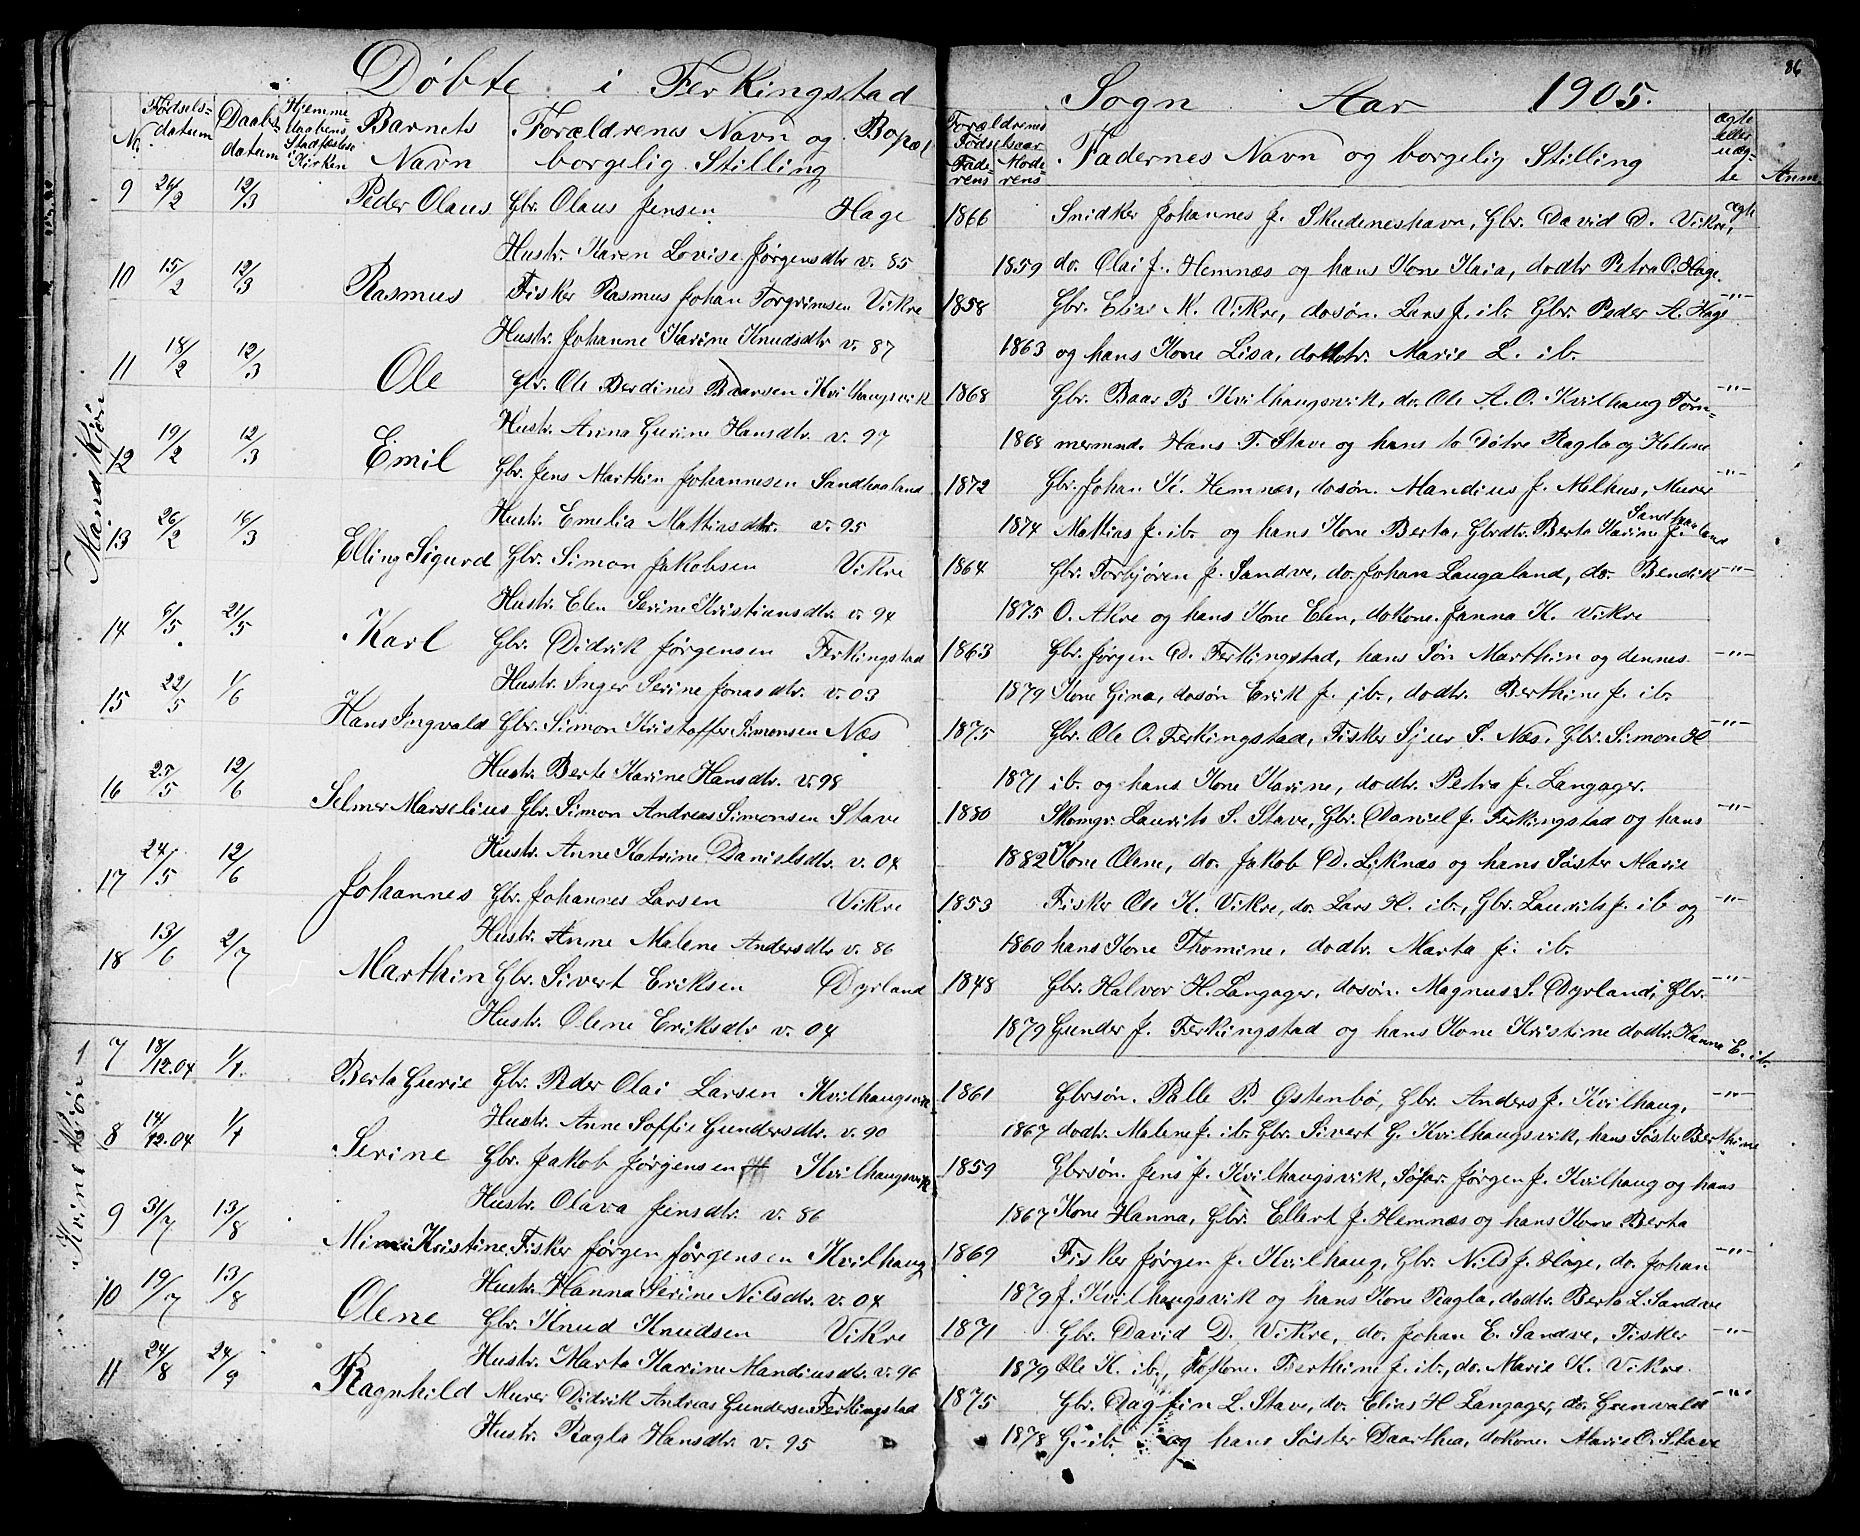 86
Døbte i Ferkingstad Sogn Aar 1905.
No. Fødselsdatum Daabsdatum Hjemmedaabens Stadfæstelse i Kirken Barnets Navn Forældrenes Navn og borgelig Stilling Bopæl Forældrenes Fødselsaar Faderens Moderens Fadernes Navn og borgelig Stilling ægte eller uægte Anm.
Mandkjøn
9 26/2 12/3 Peder Olaus Gbr. Olaus Jensen Hage 1866 Snidker Johannes J. Skudeneshavn, Gbr. David D. Vikre, ægte
Hustr. Karen Lovise Jørgensdtr v. 85 1859 do. Olai J. Hemnæs og hans Kone Kaia, dodtr Petra O. Hage.
10 15/2 12/3 Rasmus Fisker Rasmus Johan Torgrimsen Vikre 1858 Gbr. Elias M. Vikre, dosøn. Lars J. ib. Gbr. Peder A. Hage -"-
Hustr. Johanne Karine Knudsdtr v. 87 1863 og hans Kone Lisa, dodtr. Marie L. ib.
11 18/2 12/3 Ole Gbr. Ole Berdines Baarsen Kvilhaugsvik 1868 Gbr. Baar B Kvilhaugsvik, do. Ole A. O. Kvilhaug Tøm- -"-
Hustr. Anna Gurine Hansdtr. v. 97 1868 mermnd. Hans T. Stave og hans to Døtre Ragla og Helene
12 19/2 12/3 Emil Gbr. Jens Marthin Johannesen Sandhaaland 1872 Gbr. Johan K. Hemnæs, dosøn. Mandius J. Melkus, Murer -"-
Hustr. Emelia Mattiasdtr. v. 95 1874 Mattias J. ib. og hans Kone Berta, Gbrdtr. Berta Karine J. Sandhaaland
13 26/2 16/3 Elling Sigurd Gbr. Simon Jakobsen Vikre 1864 Gbr. Torbjøren J. Sandve, do. Johan Laugaland, do. Bendik -"-
Hustr. Elen Serine Kristiansdtr. v. 94 1875 O. Akre og hans Kone Elen, dokone. Janna K. Vikre
14 6/5 21/5 Karl Gbr. Didrik Jørgensen Ferkingstad 1863 Gbr. Jørgen D. Ferkingstad, hans Søn Marthin og dennes -"-
Hustr. Inger Serine Jonasdtr. v. 03 1879 Kone Gina, dosøn Erik J. ib., dodtr. Berthine J. ib.
15 22/5 1/6 Hans Ingvald Gbr. Simon Kristoffer Simonsen Næs 1875 Gbr. Ole O. Ferkingstad, Fisker Sjur S. Næs, Gbr. Simon H -"-
Hustr. Berte Karine Hansdtr. v. 98 1871 ib. og hans Kone Karine, dodtr. Petra J. Langager.
16 25/5 12/6 Selmer Marselius Gbr. Simon Andreas Simonsen Stave 1880 Skomgr. Laurits S. Stave, Gbr. Daniel J. Ferkingstad og hans -"-
Hustr. Anne Katrine Danielsdtr. v. 04 1882 Kone Olene, do. Jakob D. Liknæs og hans Søster Marie
17 24/5 12/6 Johannes Gbr. Johannes Larsen Vikre 1853 Fisker Ole K. Vikre, do. Lars H. ib., Gbr. Laurits J. ib og -"-
Hustr. Anne Malene Andersdtr v. 86 1860 hans Kone Thomine, dodtr. Marta J. ib.
18 13/6 2/7 Marthin Gbr. Sivert Eriksen Dyrland 1848 Gbr. Halvor H. Langager, dosøn. Magnus S. Dyrland, Gbr. -"-
Hustr. Olene Eriksdtr v. 04 1879 Gunder J. Ferkingstad og hans Kone Kristine dodtr. Hanna E. ib.
Kvindkjøn
7 18/12.04 1/1 Berta Gurie Gbr. Peder Olai Larsen Kvilhaugsvik 1861 Gbrsøn. Palle P. Østenbø, Gbr. Anders J. Kvilhaug, -"-
Hustr. Anne Soffie Gundersdtr. v. 90 1867 dodtr. Malene J. ib. Gbr. Sivert G. Kvilhaugsvik, hans Søster Berthine
8 14/12.04 1/1 Serine Gbr. Jakob Jørgensen Kvilhaugsvik 1859 Gbrsøn. Jens J. Kvilhaugsvik, Søfar. Jørgen J. Kvilhaug og hans
Hustr. Olava Jensdtr. v. 86 1867 Kone Hanna, Gbr. Ellert J. Hemnæs og hans Kone Berta
9 31/7 13/8 Mimi Kristine Fisker Jørgen Jørgensen Kvilhaug 1869 Fisker Jørgen J. Kvilhaug, Gbr. Nils J. Hage, do. Johan -"-
Hustr. Hanna Serine Nilsdtr v. 04 1879 J. Kvilhaugsvik og hans Kone Ragla, dodtr. Berta L. Sandve
10 19/7 13/8 Olene Gbr. Knud Knudsen Vikre 1871 Gbr. David D. Vikre, do. Johan E. Sandve, Fisker -"-
Hustr. Marta Karine Mandiusdtr. v. 96 1879 Ole K. ib., dokone. Berthine J. ib., do. Marie K. Vikre.
11 24/8 24/9 Ragnhild Murer Didrik Antreas Gundersen Ferkingstad 1875 Gbr. Dagfin L. Stave, do. Elias H Langager, do. Gunvald -"-
Hustr. Ragla Hansdtr. v. 95 1878 G. ib. og hans Søster Daarthea, dokone. Marie O. Stave